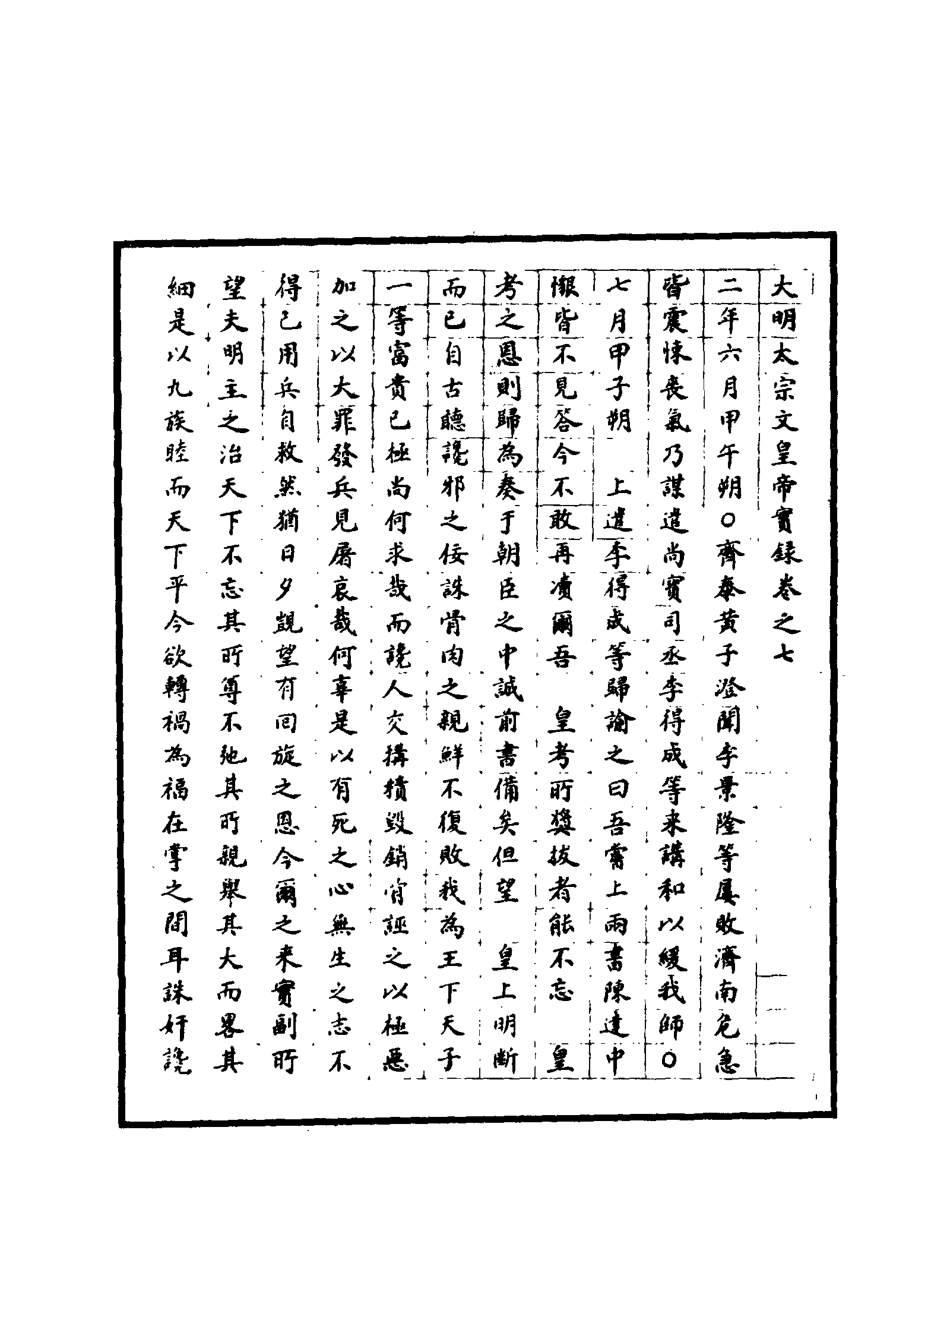 大明太宗文皇帝實録卷之七
二年六月甲午朔○齊泰黄子澄聞李景隆等屢敗濟南危急
皆震悚喪氣乃謀遣尚寳司丞李得成等来講和以緩我師○
七月甲子朔　上遣李得成等歸諭之曰吾嘗上兩書陳達中
懇皆不見答今不敢再凟爾吾　皇考所奬拔者能不忘　皇
考之恩則歸為奏于朝臣之中誠前書備矣但望　皇上明断
而已自古聽讒邪之佞誅骨肉之親鮮不復敗我為王下天子
一等富貴已極尚何求哉而讒人交搆積毀銷骨誣之以極惡
加之以大罪發兵見屠哀哉何辜是以有死之心無生之志不
得已用兵自救然猶日夕覬望有回旋之恩今爾之来實副所
望夫明主之治天下不忘其所尊不弛其所親舉其大而畧其
細是以九族睦而天下平今欲轉禍為福在掌之間耳誅奸讒